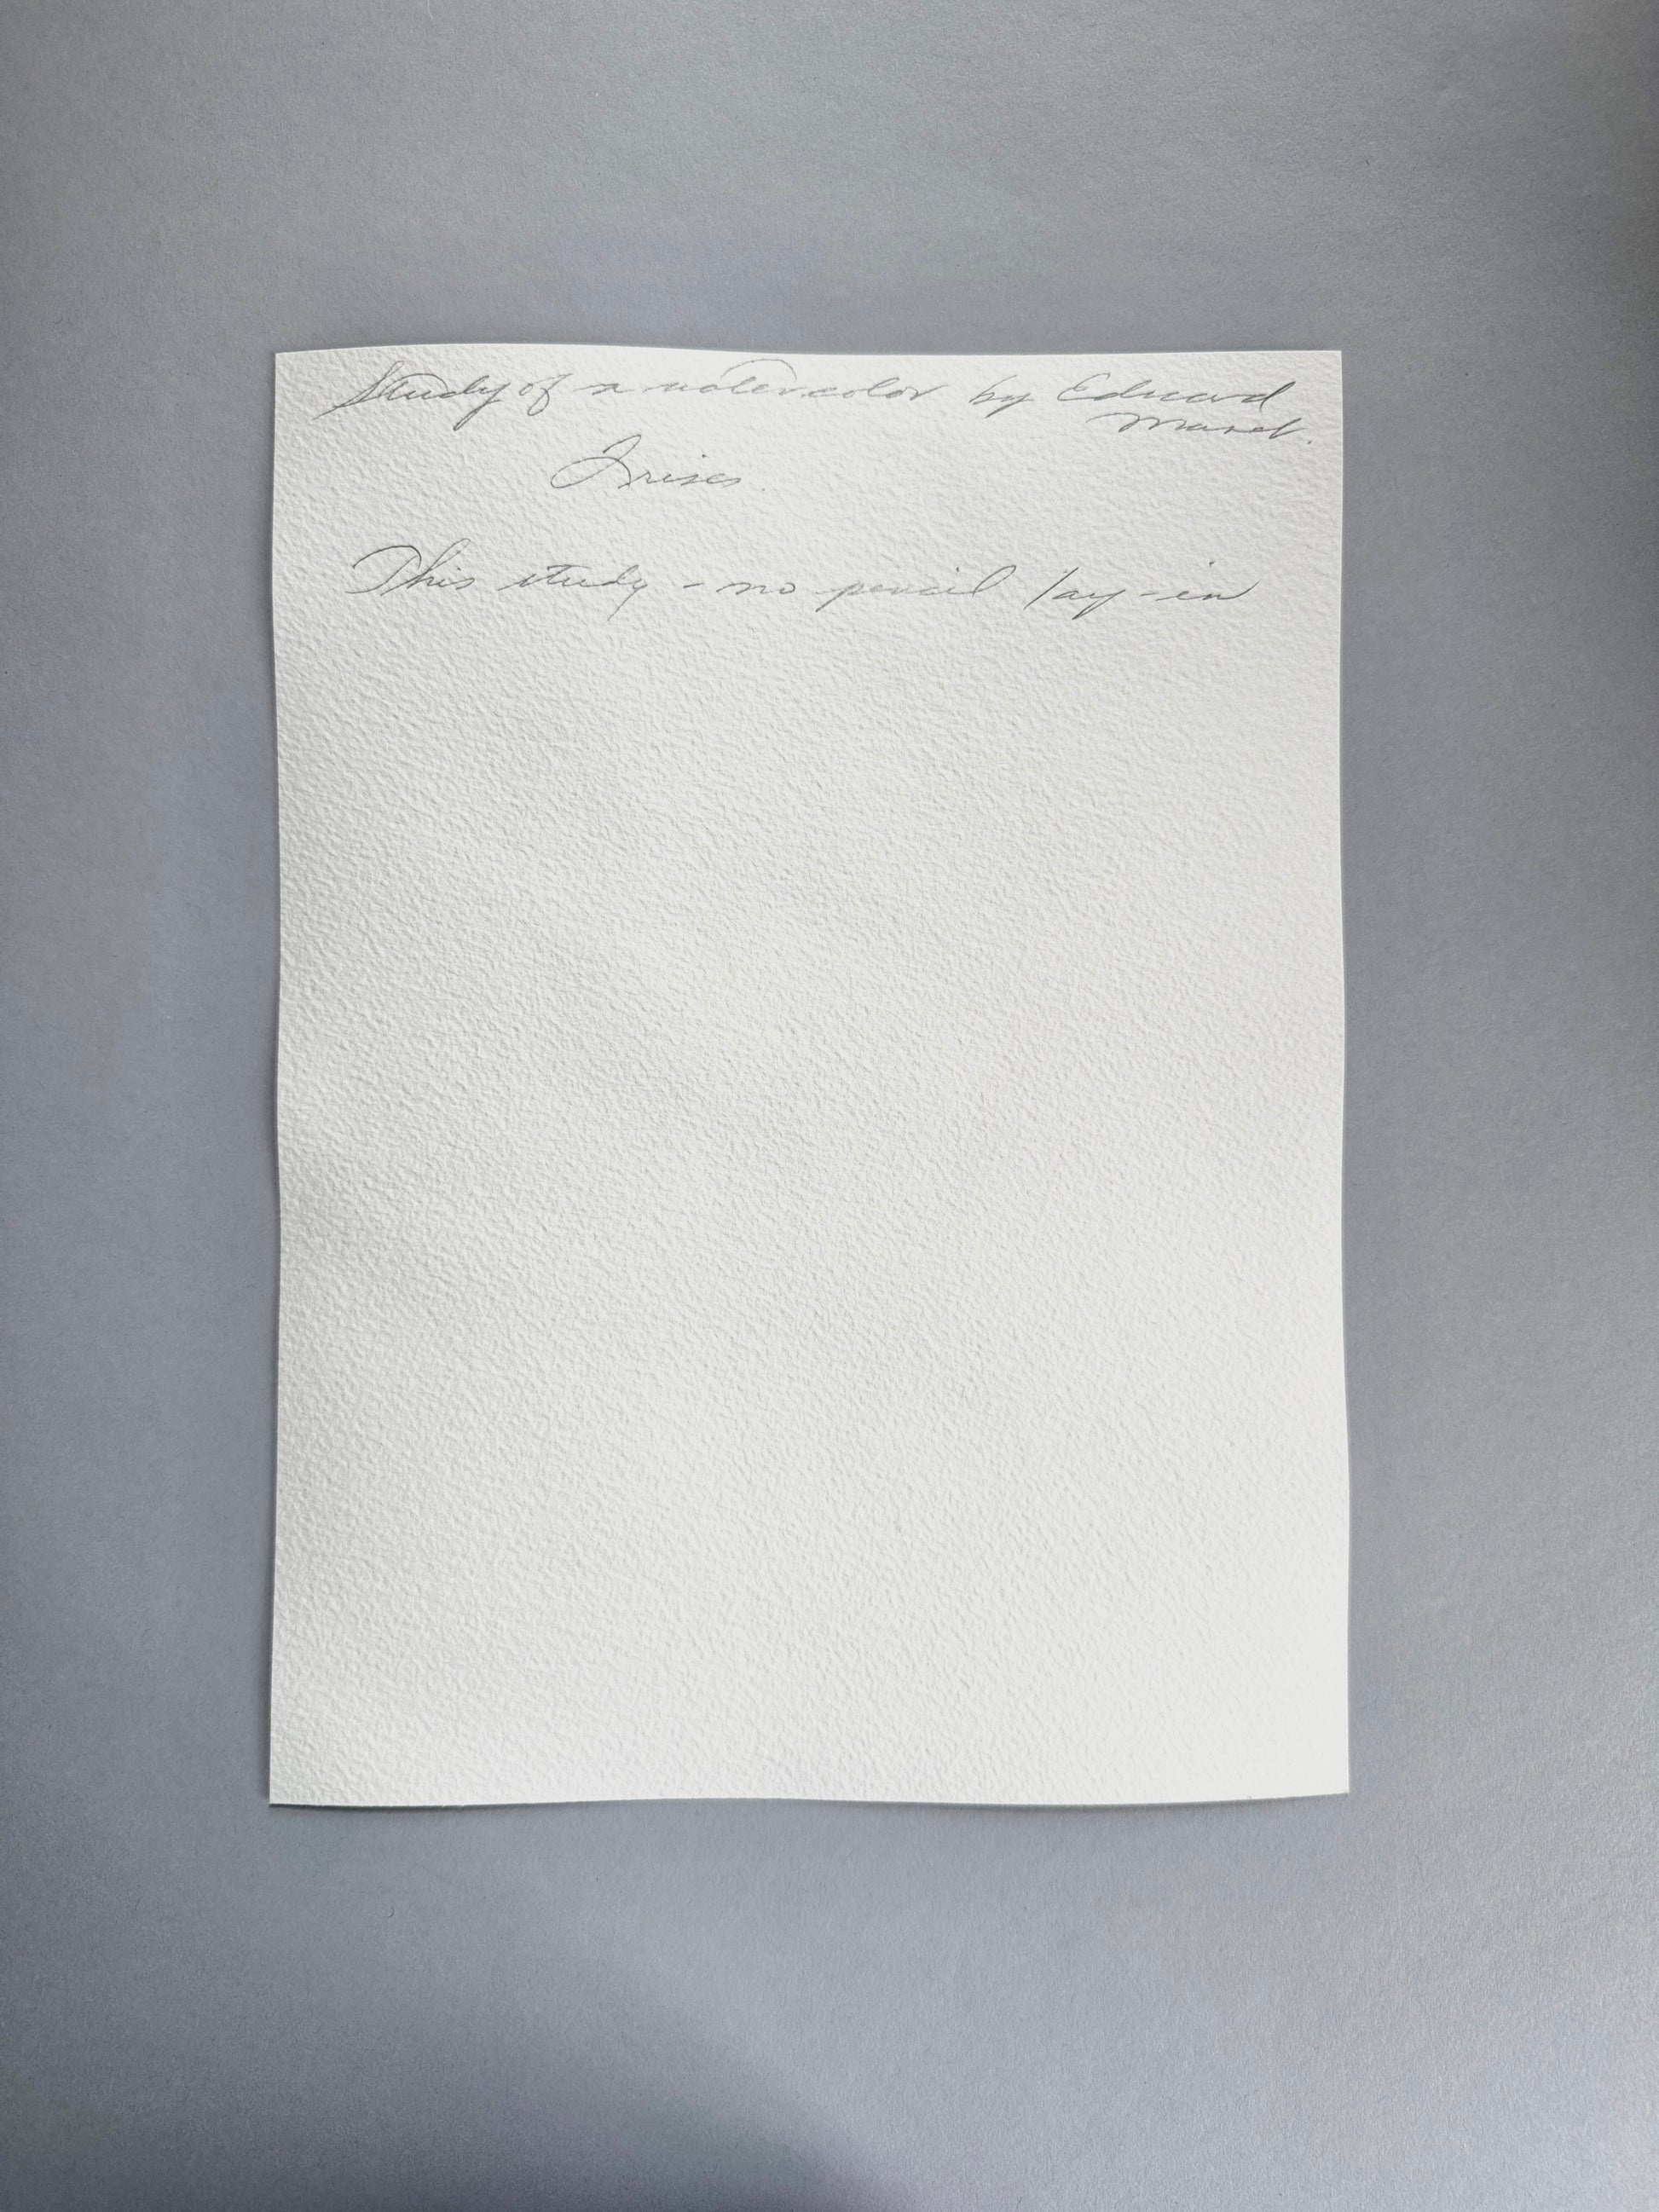 Study of a watercolor by Eduard
Manet.
Irises
This study - no pencil lay-in